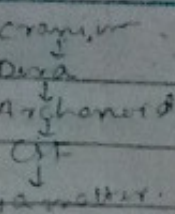 Cranium
↓
Dura
↓
Arachanoid
↓
CSF
↓